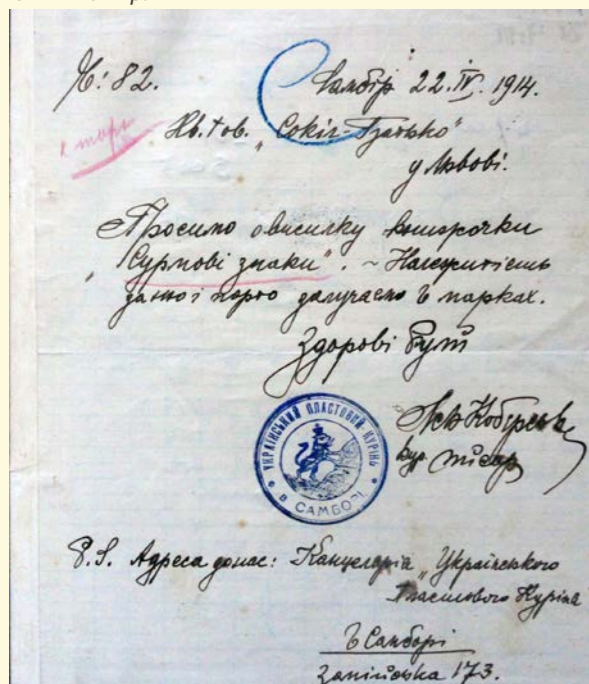 Ч: 82.
Самбір 22. IV. 1914.
Хв. Тов. „Сокіл-Батько“
у Львові.
Просимо о висилку книжочки
„Сурмові знаки“. – Належитість
за но і порто долучаємо в марках.
Здорові Були
УКРАЇНСЬКИЙ ПЛАСТОВИЙ КУРІНЬ
В САМБОРІ
писар
P.S. Адреса до нас: Канцелярія „Українського
Пластового Куріня“
в Самборі
173.